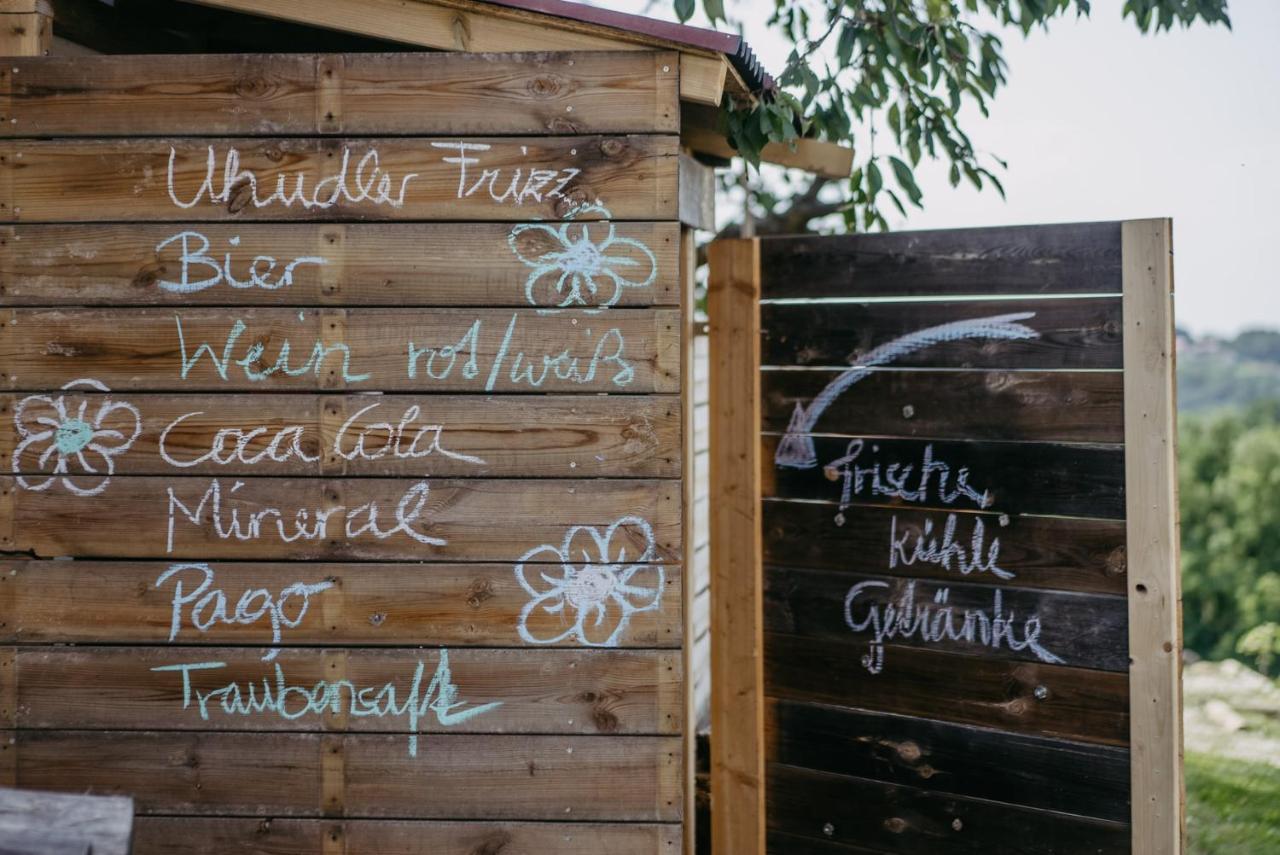 Uhudler Frizz
Bier
Wein rot/weiß
Coca Cola
Mineral
Pago
Traubensaft
frische
kühle
Getränke